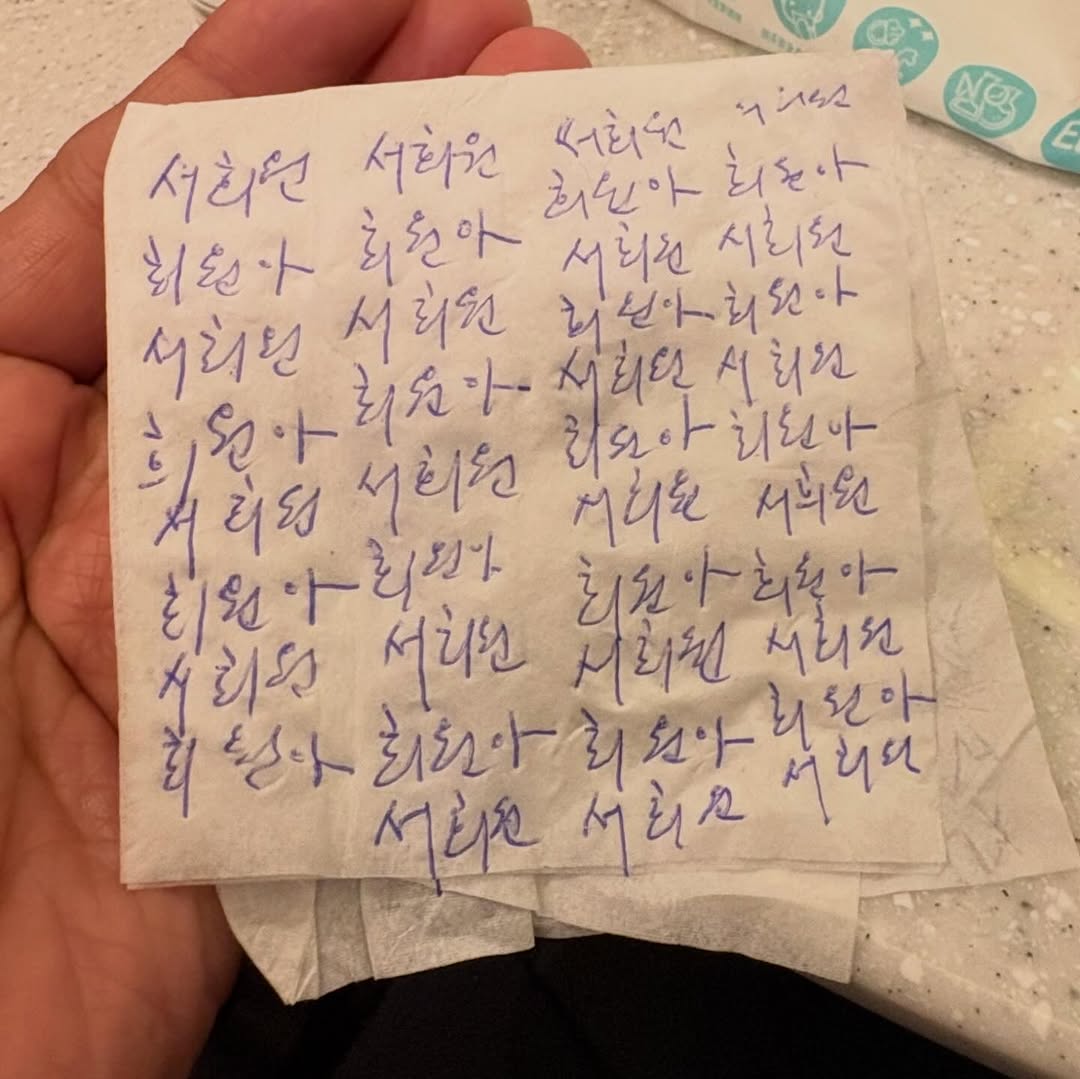 서희원
희원아
서희원
희원아
서희원
희원아
서희원
희원아
서희원
희원아
서희원
희원아
서희원
희원아
서희원
희원아
서희원
서희원
희원아
서희원
희원아
서희원
희원아
서희원
희원아
서희원
희원아
서희원
서희원
희원아
서희원
희원아
서희원
희원아
서희원
희원아
서희원
희원아
서희원
NO